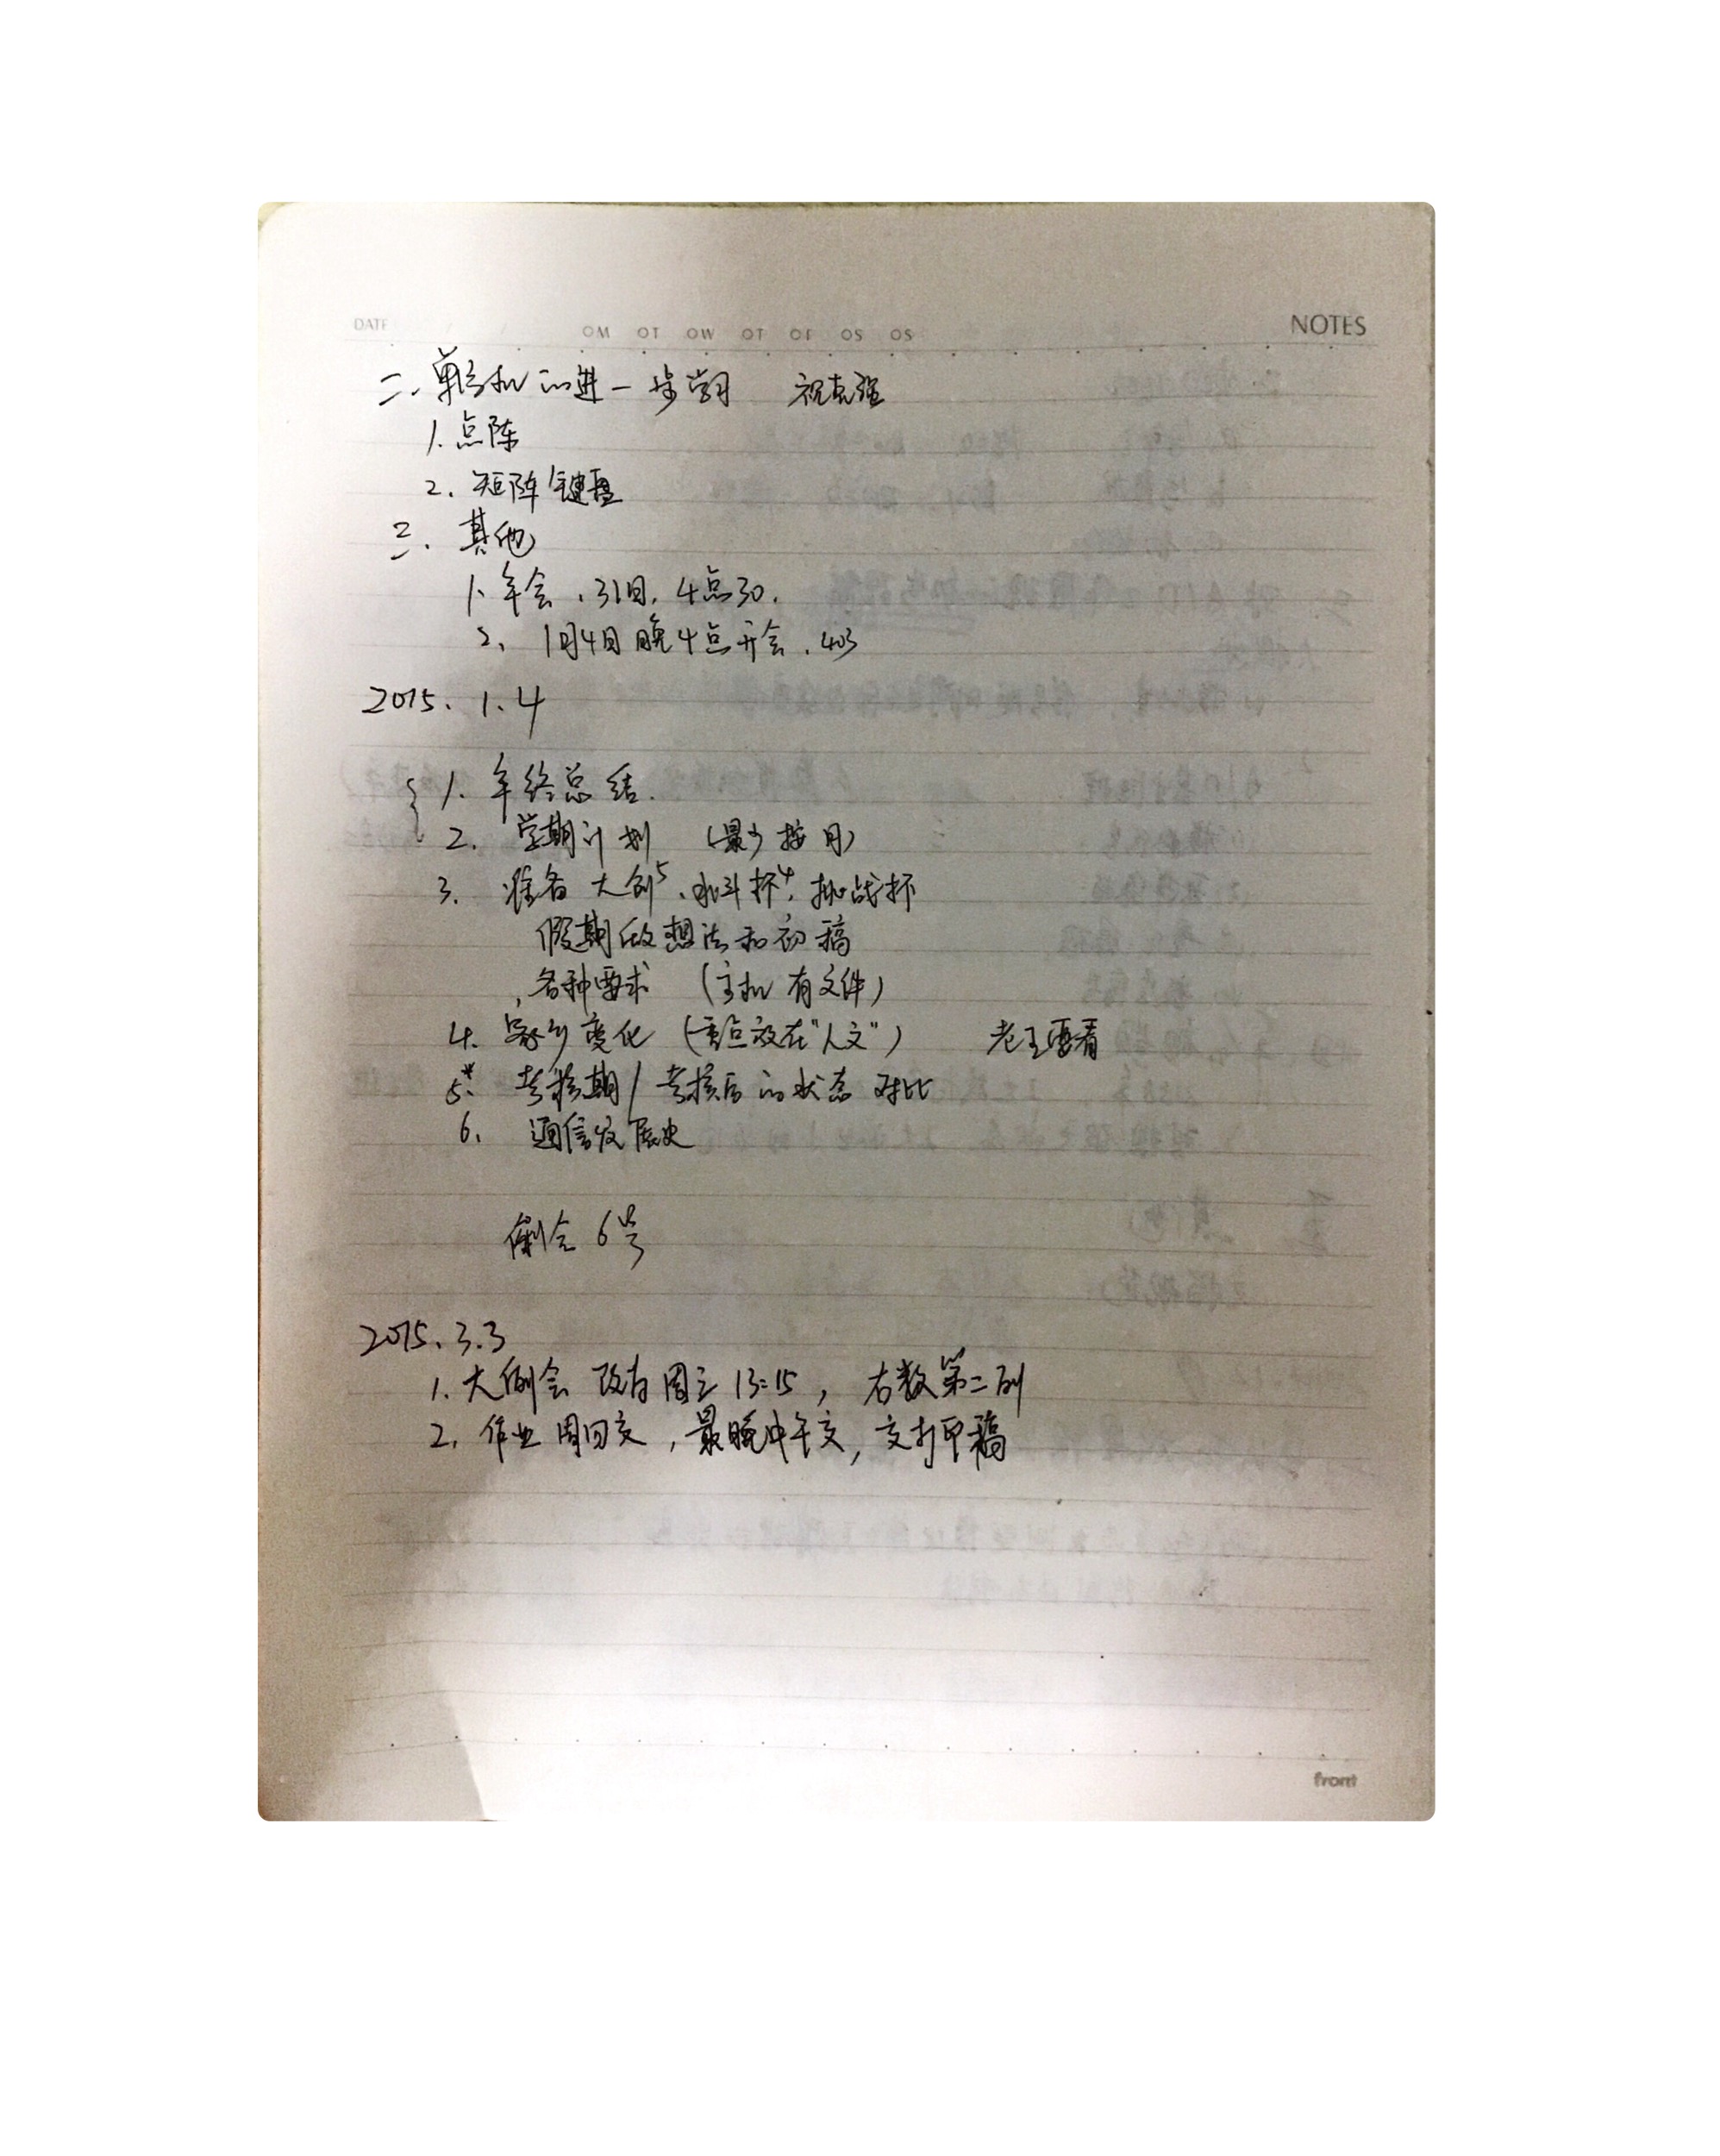 DATE / / OM OT OW OT OF OS OS NOTES
二、单片机的进一步学习 祝克强
1. 点阵
2. 矩阵键盘
三、其他
1、年会、31日、4点30、
2、1月4日晚4点开会、403
2015.1.4
1. 年终总结.
2. 学期计划 (最少按月)
3. 准备大创5、水斗杯4、挑战杯
假期做想法和初稿
各种要求 (主机有文件)
4. 家乡变化 (重点放在"人文") 老王要看
5.* 考核期/考核后的状态对比
6. 通信发展史
例会 6号
2015.3.3
1. 大例会改为周三 13:15, 右数第二列
2. 作业周四交, 最晚中午交, 交打印稿
front